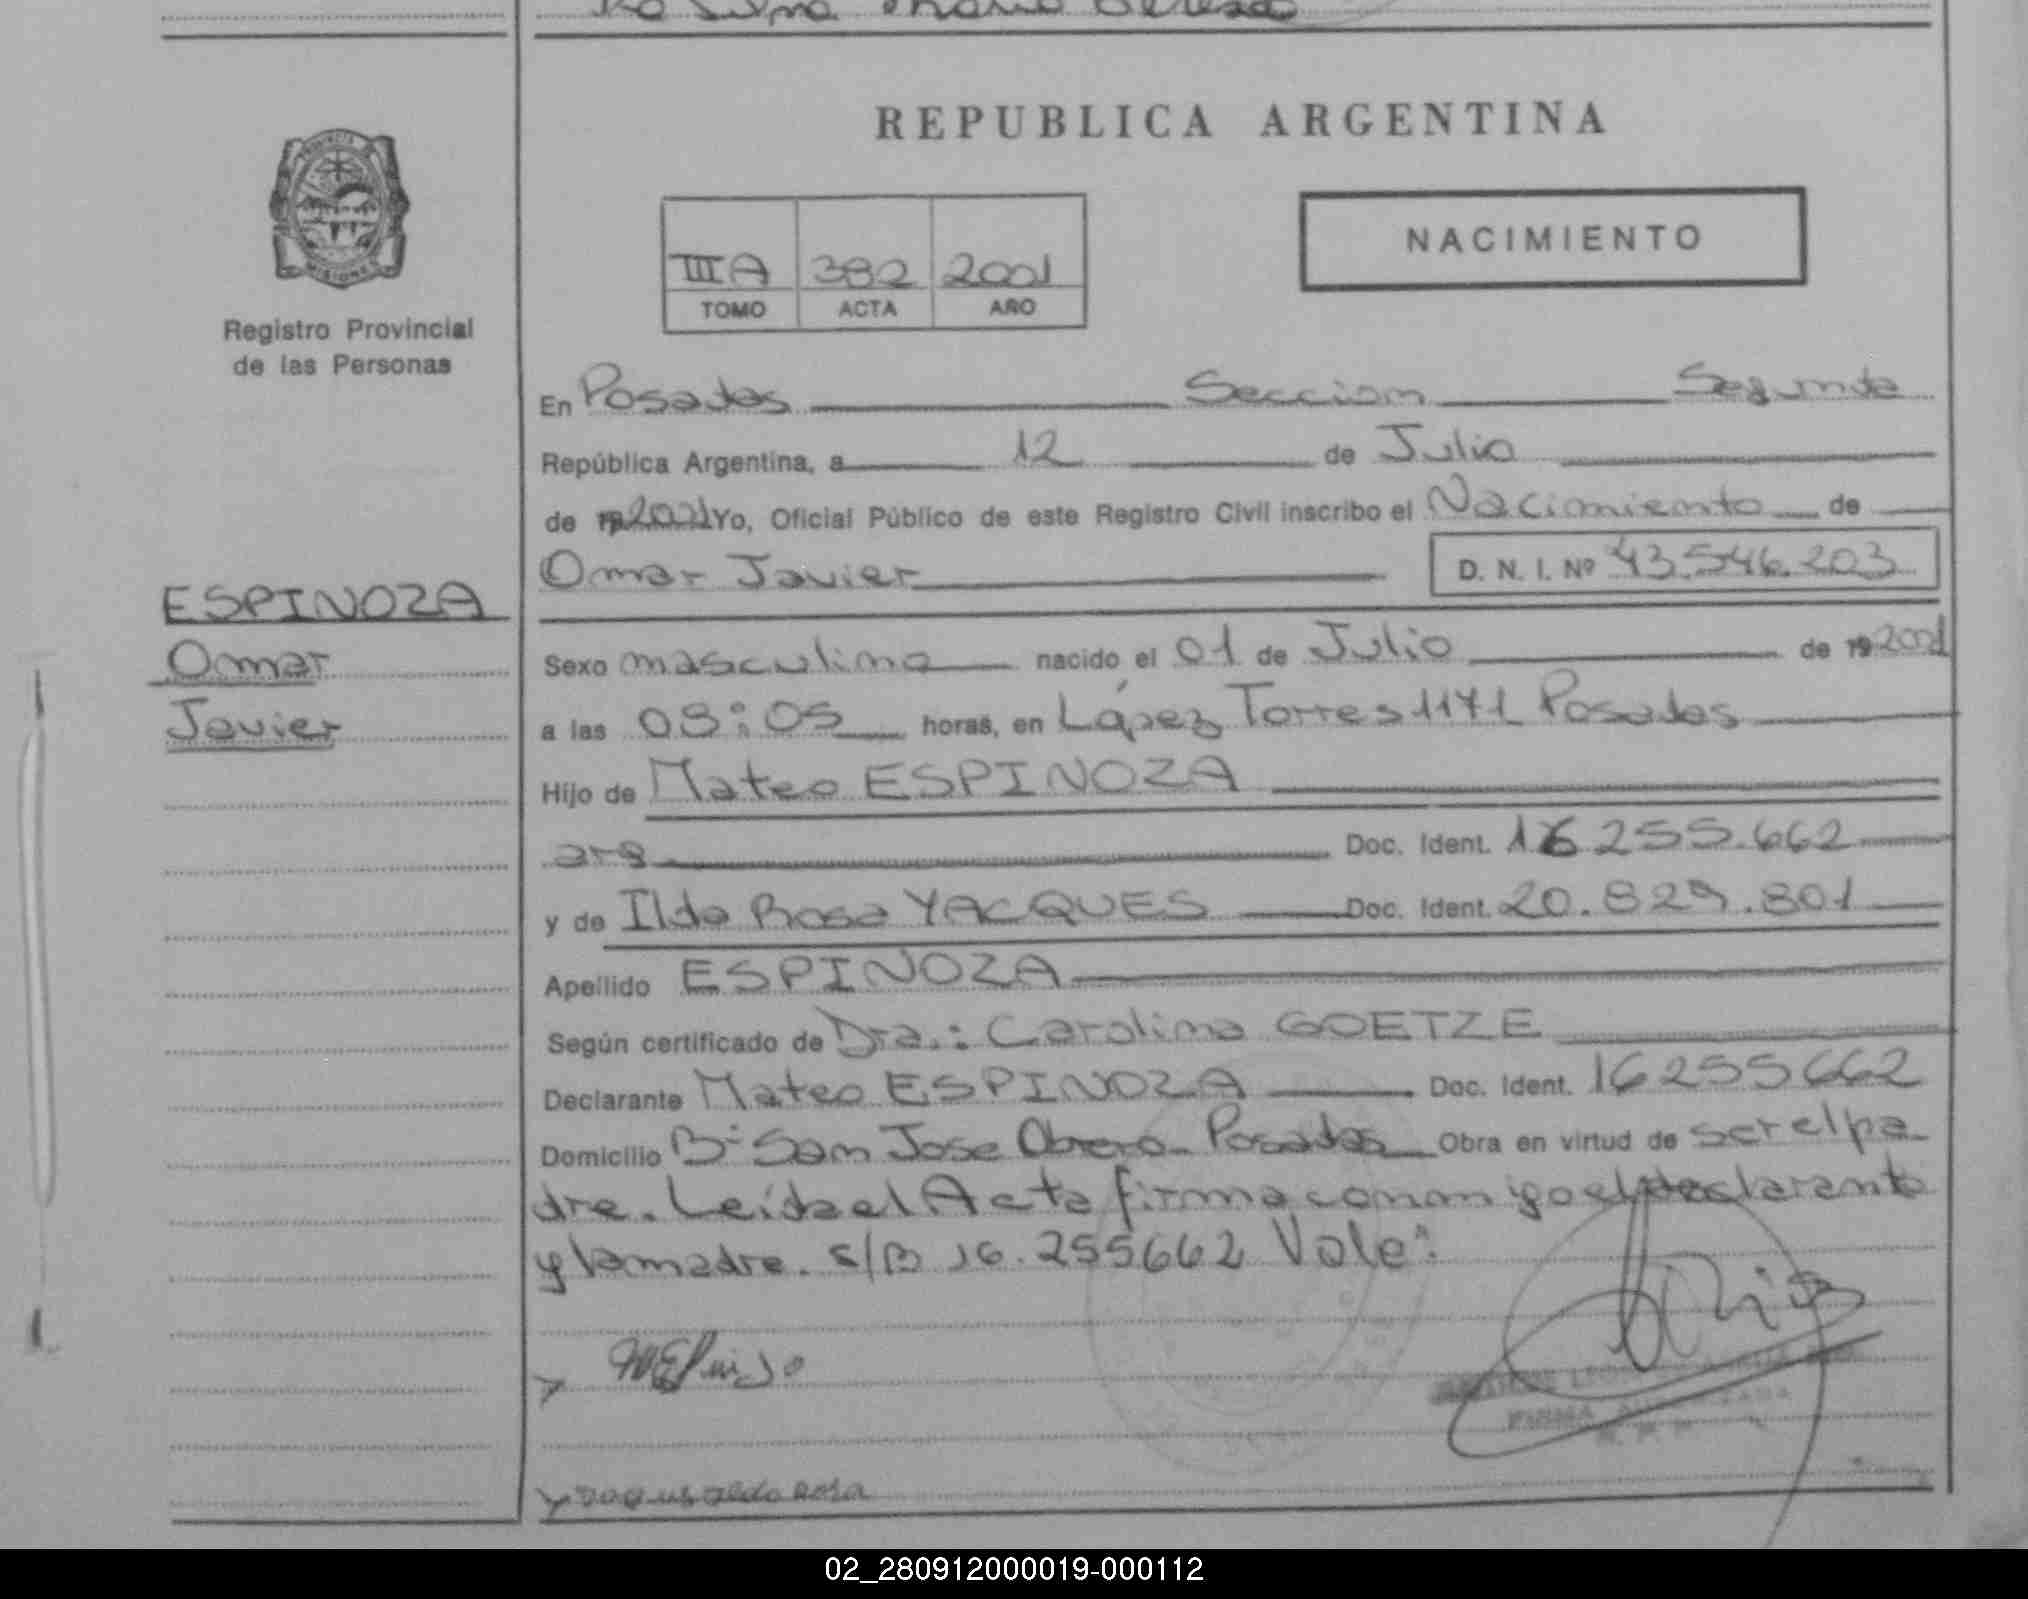 REPUBLICA ARGENTINA
PROVINCIA
MISIONES
Registro Provincial
de las Personas
NACIMIENTO
III A 382 2001
TOMO ACTA AÑO
En Posadas Seccion Segunda
República Argentina, a 12 de Julio
de 2001 Yo, Oficial Público de este Registro Civil inscribo el Nacimiento de
Omar Javier D. N. I. Nº 43.546.203
ESPINOZA
Omar
Javier
Sexo masculino nacido el 01 de Julio de 192001
a las 08:05 horas, en López Torres 1171 Posadas
Hijo de Mateo ESPINOZA
arg Doc. Ident. 16 255.662
y de Ilda Rosa YACQUES Doc. Ident. 20.829.801
Apellido ESPINOZA
Según certificado de Dra.: Carolina GOETZE
Declarante Mateo ESPINOZA Doc. Ident. 16255662
Domicilio Bº San Jose Obrero - Posadas Obra en virtud de ser el pa-
dre. Leída el Acta firma conmigo el declarante
y la madre. s/B 16.255662 Vale".
FIRMA
02_280912000019-000112